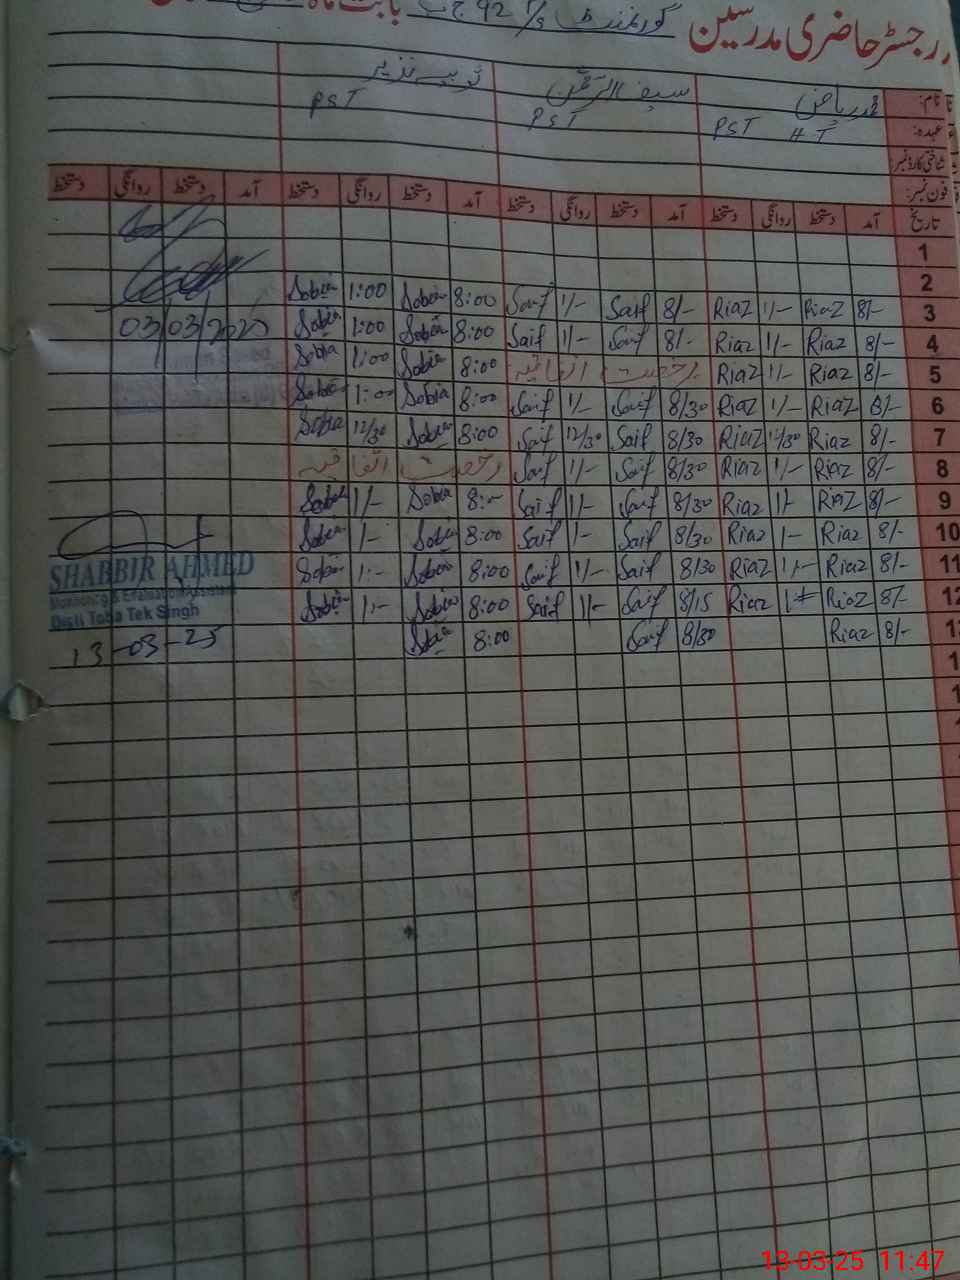 رجسٹر حاضری مدرسین گورنمنٹ 92 ج ب بابت ماہ
نام: محمد ریاض سیف الرحمٰن ثوبیہ نذیر
عہدہ: PST HT PST PST
شناختی کارڈ نمبر:
فون نمبر:
تاریخ آمد دستخط روانگی دستخط آمد دستخط روانگی دستخط آمد دستخط روانگی دستخط آمد دستخط روانگی دستخط
1
2
3 8/- Riaz 1/- Riaz 8/- Saif 1/- Saif 8:00 Sobia 1:00 Sobia
4 8/- Riaz 1/- Riaz 8/- Saif 1/- Saif 8:00 Sobia 1:00 Sobia 03/03/2025
5 8/- Riaz 1/- Riaz رخصت اتفاقیہ 8:00 Sobia 1:00 Sobia
6 8/- Riaz 1/- Riaz 8/30 Saif 1/- Saif 8:00 Sobia 1:00 Sobia
7 8/- Riaz 12/30 Riaz 8/30 Saif 12/30 Saif 8:00 Sobia 12/30 Sobia
8 8/- Riaz 1/- Riaz 8/30 Saif 1/- Saif رخصت اتفاقیہ
9 8/- Riaz 1/- Riaz 8/30 Saif 1/- Saif 8:- Sobia 1/- Sobia
10 8/- Riaz 1/- Riaz 8/30 Saif 1/- Saif 8:00 Sobia 1- Sobia
11 8/- Riaz 1/- Riaz 8/30 Saif 1/- Saif 8:00 Sobia 1:- Sobia
12 8/- Riaz 1/- Riaz 8/15 Saif 1/- Saif 8:00 Sobia 1:- Sobia
13 8/- Riaz 8/30 Saif 8:00 Sobia
SHABBIR AHMED
Monitoring & Evaluation Assistant
Distt Toba Tek Singh
13-03-25
13-03-25 11:47